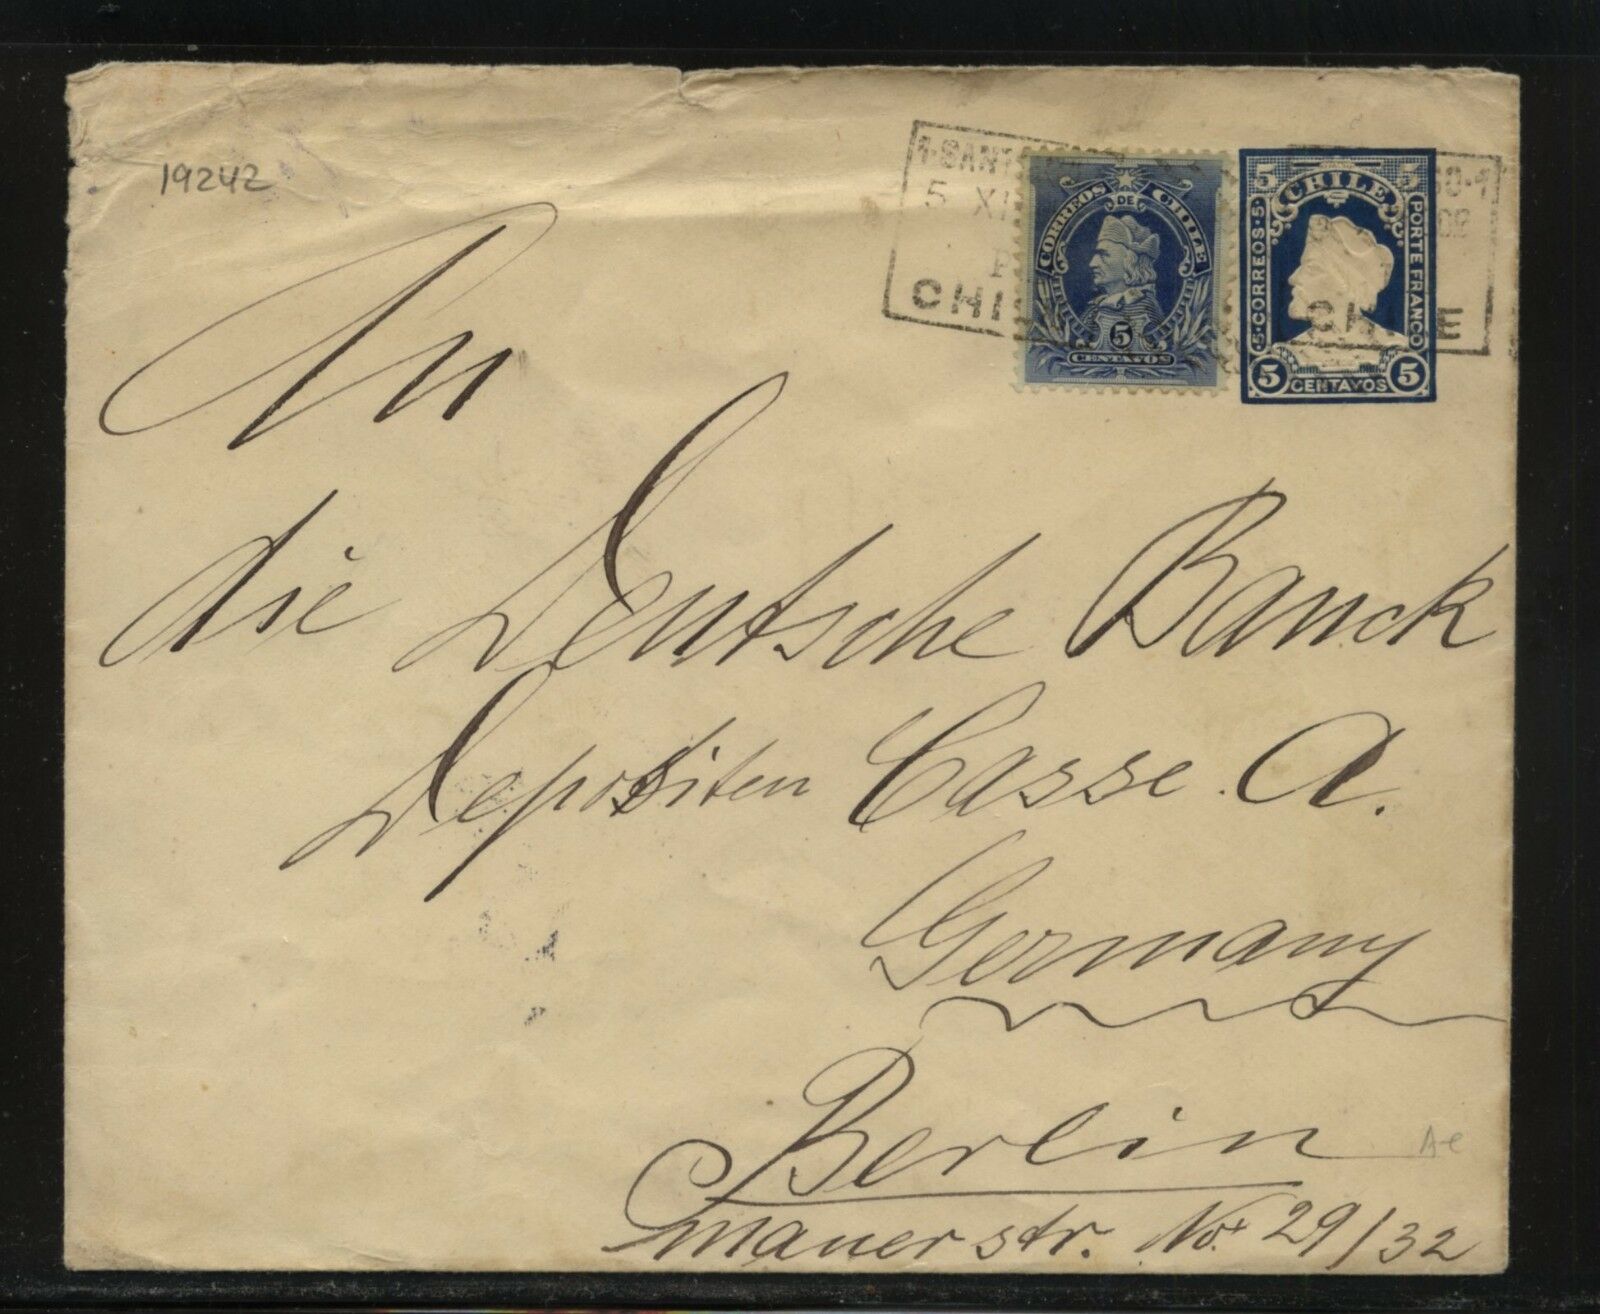 19242
5 XI
CHI
CORREOS DE CHILE
5
CENTAVOS
5 CHILE 5
5·CORREOS·5
PORTE FRANCO
CHILE
5 CENTAVOS 5
An
die Deutsche Banck
Depositen Casse A.
Germany
Berlin
Mauerstr. No. 29/32